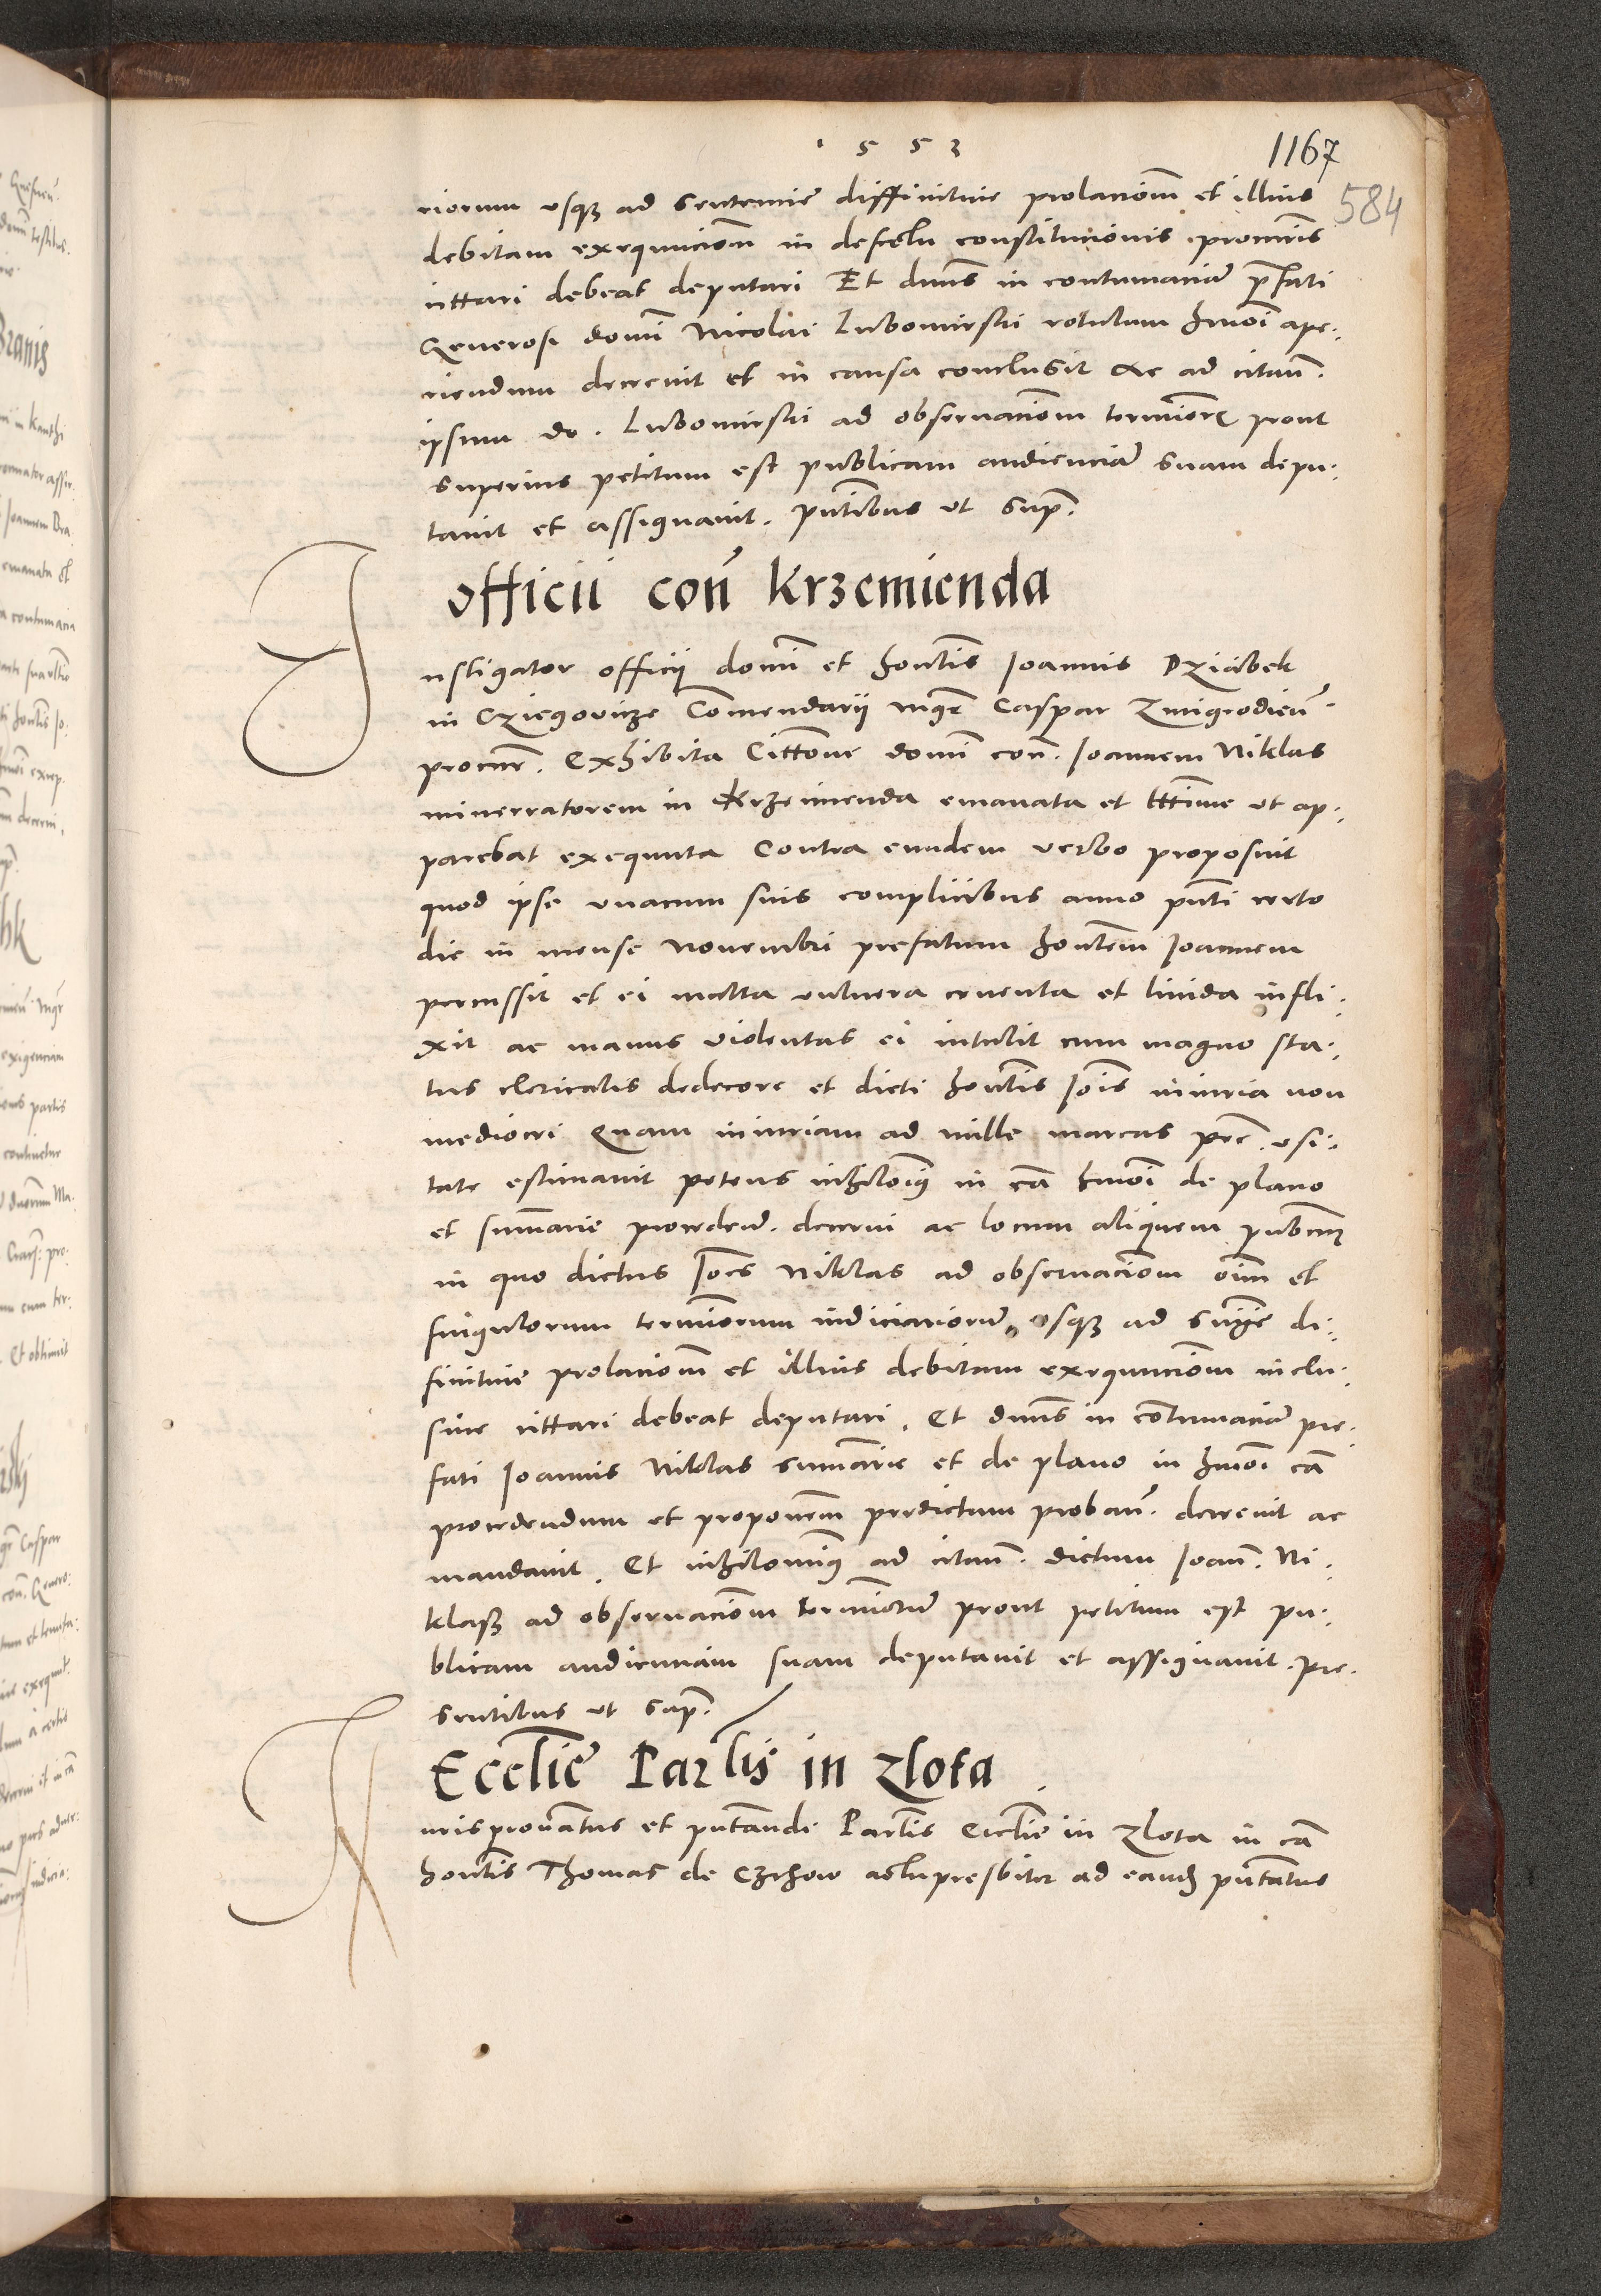 1553
1167
584
riorum usq3 ad Sententie diffinitive prolaciom et illius
debitam exequuciom in defectu constitucionis procuris
cittari debeat deputari Et dnus in contumaciam prefati
Generosi domi Nicolai Lubomirski rotulum hmoi ape:
riendum decrevit et in causa conclusit Ac ad citan.
ipsum do. Lubomirski ad observaciom terminor prout
superius petitum est publicam audienciam suam depu:
tavit et assignavit. pntibus ut sup.
Officii con Krzemienda
Instigator officij domi et hontis Joannis Dziabek
in Cziegovicze Comendarij mgr Caspar Zmigrodien.
procur. Exhibita Cittone domi con. Joannem Niklas
mineratorem in Krzemienda emanata et lttime ut ap:
parebat exequuta Contra eundem verbo proposuit
quod ipse unacum suis complicibus anno pnti certo
die in mense Novembri prefatum hontem Joannem
percussit et ei multa vulnera cruenta et livida infli:
xit ac manus violentas ei intulit cum magno sta:
tus clericalis dedecore et dicti hontis Jois iniuria non
mediocri Quam iniuriam ad mille marcas pec. usi:
tate estimavit petens nihilomi9 in ca hmoi de plano
et summarie procedend. decerni ac locum aliquem pubcum
in quo dictus Joes Niklas ad observaciom oim et
singulorum terminorum iudiciariorum usq3 ad Snie di:
finitive prolaciom et illius debitam exequuciom inclu:
sive cittari debeat deputari. Et dnus in contumaciam pre:
fati Joannis Niklas summarie et de plano in hmoi ca
procedendum et proponem predictam proban. decrevit ac
mandavit. Et nihilomin9 ad citan. dictum Joan. Ni:
klass ad observaciom terminorum prout petitum est pu:
blicam audienciam suam deputavit et assignavit. pre:
sentibus ut sup.
Ecclie Parlis in Zlota
Jurisprontatus et pntandi Parlis Ecclie in Zlota in ca
hontis Thomas de Czchow actu presbiter ad eand pntatus